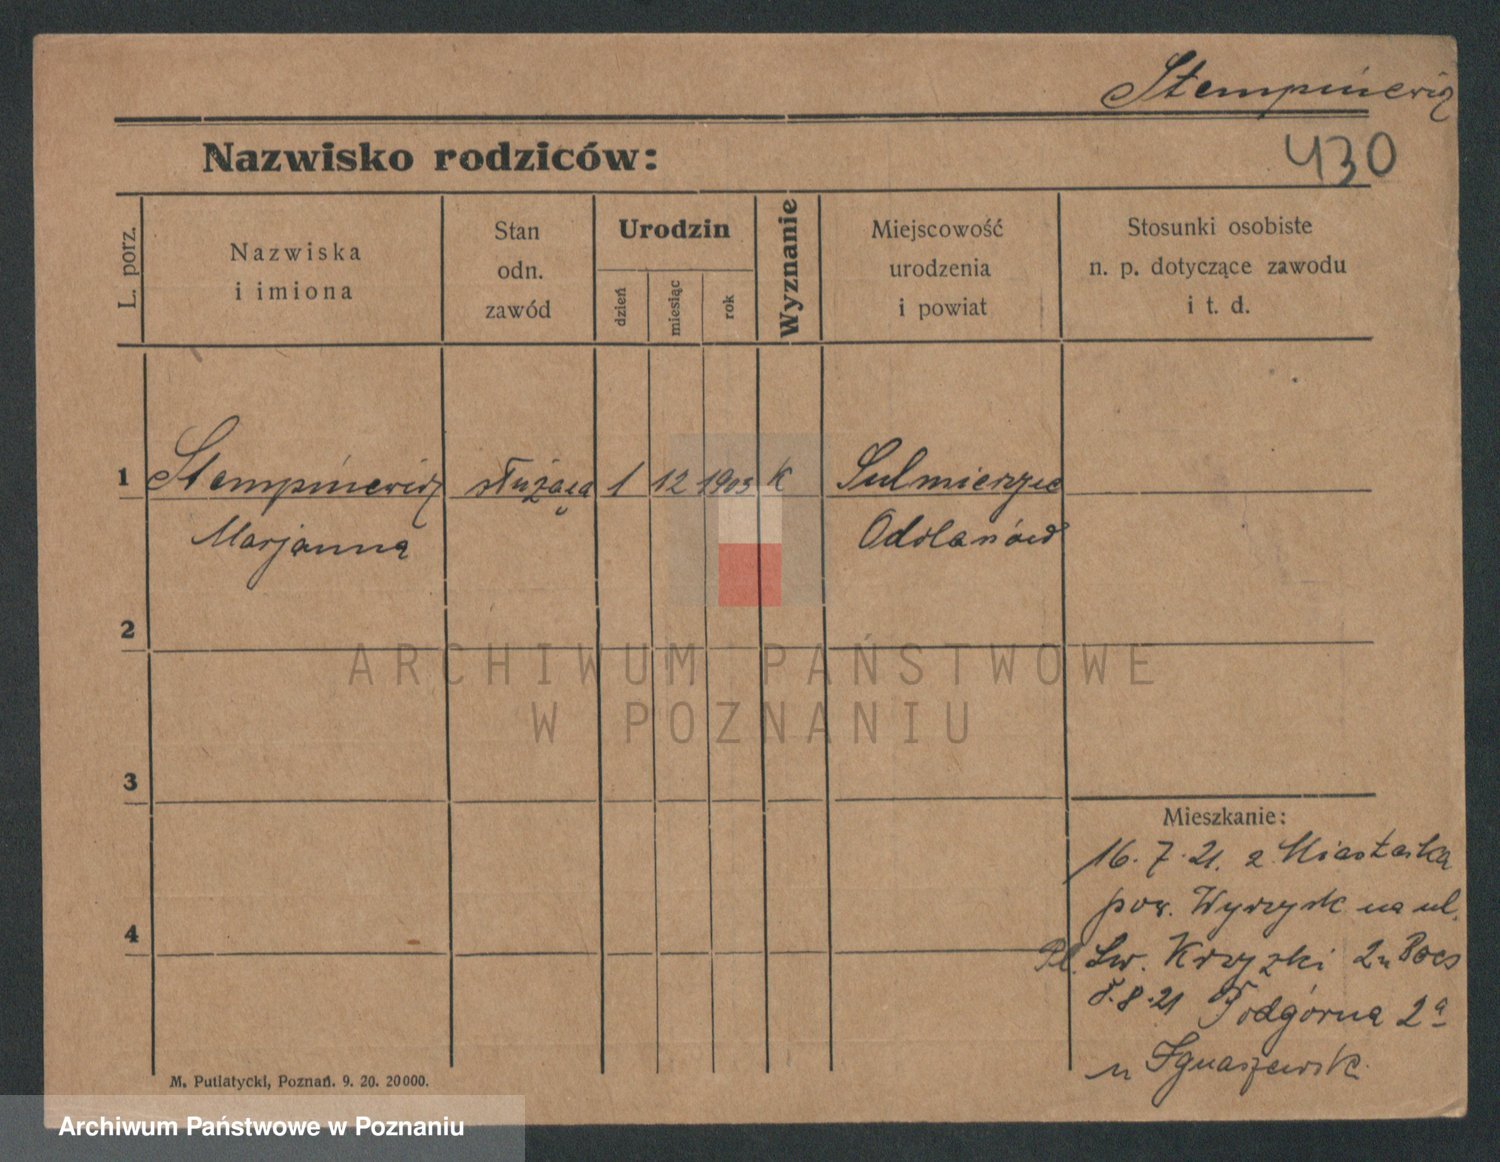 Stempniewicz
430
Nazwisko rodziców:
L. porz.
Nazwiska
i imiona
Stan
odn.
zawód
Urodzin
dzień
miesiąc
rok
Wyznanie
Miejscowość
urodzenia
i powiat
Stosunki osobiste
n. p. dotyczące zawodu
i t. d.
1 Stempniewicz służąca 1 12 1903 K Sulmierzyce
Marjanna Odolanów
2
3
4
Mieszkanie:
16. 7. 21. z Miasteczka
pow. Wyrzysk na ul.
Pl. Św. Krzyzki 2 u
8. 8. 21 Podgórna 2a
u Ignaszewsk.
M. Putiatycki, Poznań. 9. 20. 20000.
ARCHIWUM PAŃSTWOWE
W POZNANIU
Archiwum Państwowe w Poznaniu